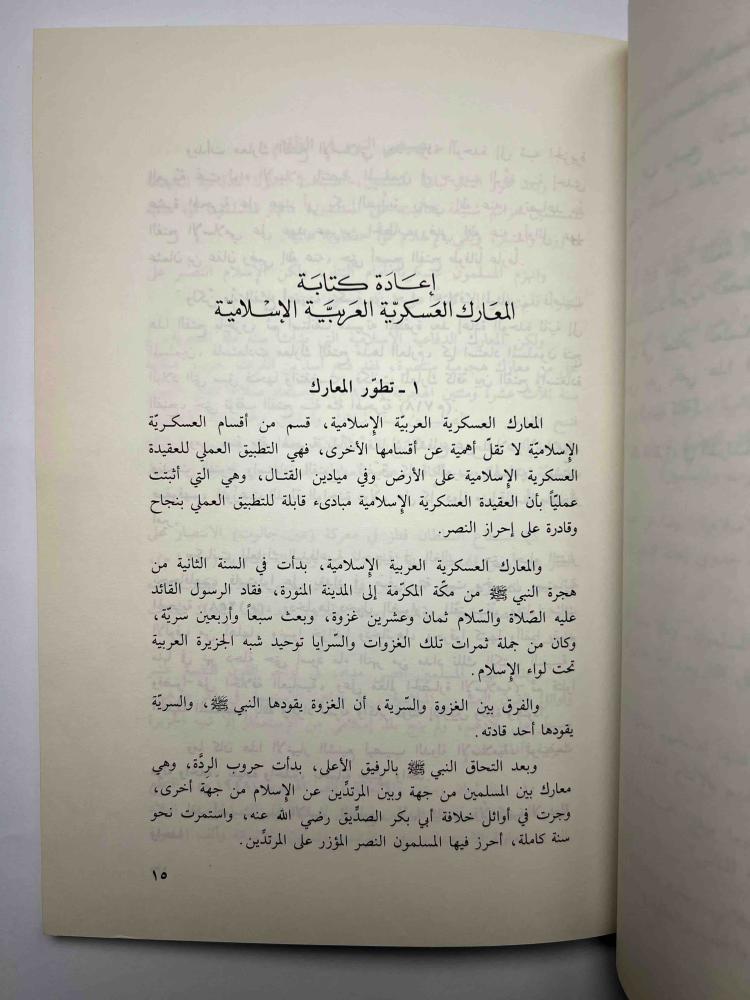 إعَادَة كتابَة
المعَارك العَسكريّة العَربيَّة الإسْلاميّة
١ - تطوّر المعارك
المعارك العسكرية العربيّة الإسلامية، قسم من أقسام العسكريّة
الإسلاميّة لا تقلّ أهمية عن أقسامها الأخرى، فهي التطبيق العملي للعقيدة
العسكرية الإسلامية على الأرض وفي ميادين القتال، وهي التي أثبتت
عمليّاً بأن العقيدة العسكرية الإسلامية مبادىء قابلة للتطبيق العملي بنجاح
وقادرة على إحراز النصر.
والمعارك العسكرية العربية الإسلامية، بدأت في السنة الثانية من
هجرة النبي ﷺ من مكّة المكرّمة إلى المدينة المنورة، فقاد الرسول القائد
عليه الصّلاة والسّلام ثمان وعشرين غزوة، وبعث سبعاً وأربعين سريّة،
وكان من جملة ثمرات تلك الغزوات والسّرايا توحيد شبه الجزيرة العربية
تحت لواء الإسلام.
والفرق بين الغزوة والسّرية، أن الغزوة يقودها النبي ﷺ، والسريّة
يقودها أحد قادته.
وبعد التحاق النبي ﷺ بالرفيق الأعلى، بدأت حروب الرِدَّة، وهي
معارك بين المسلمين من جهة وبين المرتدِّين عن الإسلام من جهة أخرى،
وجرت في أوائل خلافة أبي بكر الصدِّيق رضي الله عنه، واستمرت نحو
سنة كاملة، أحرز فيها المسلمون النصر المؤزر على المرتدِّين.
١٥